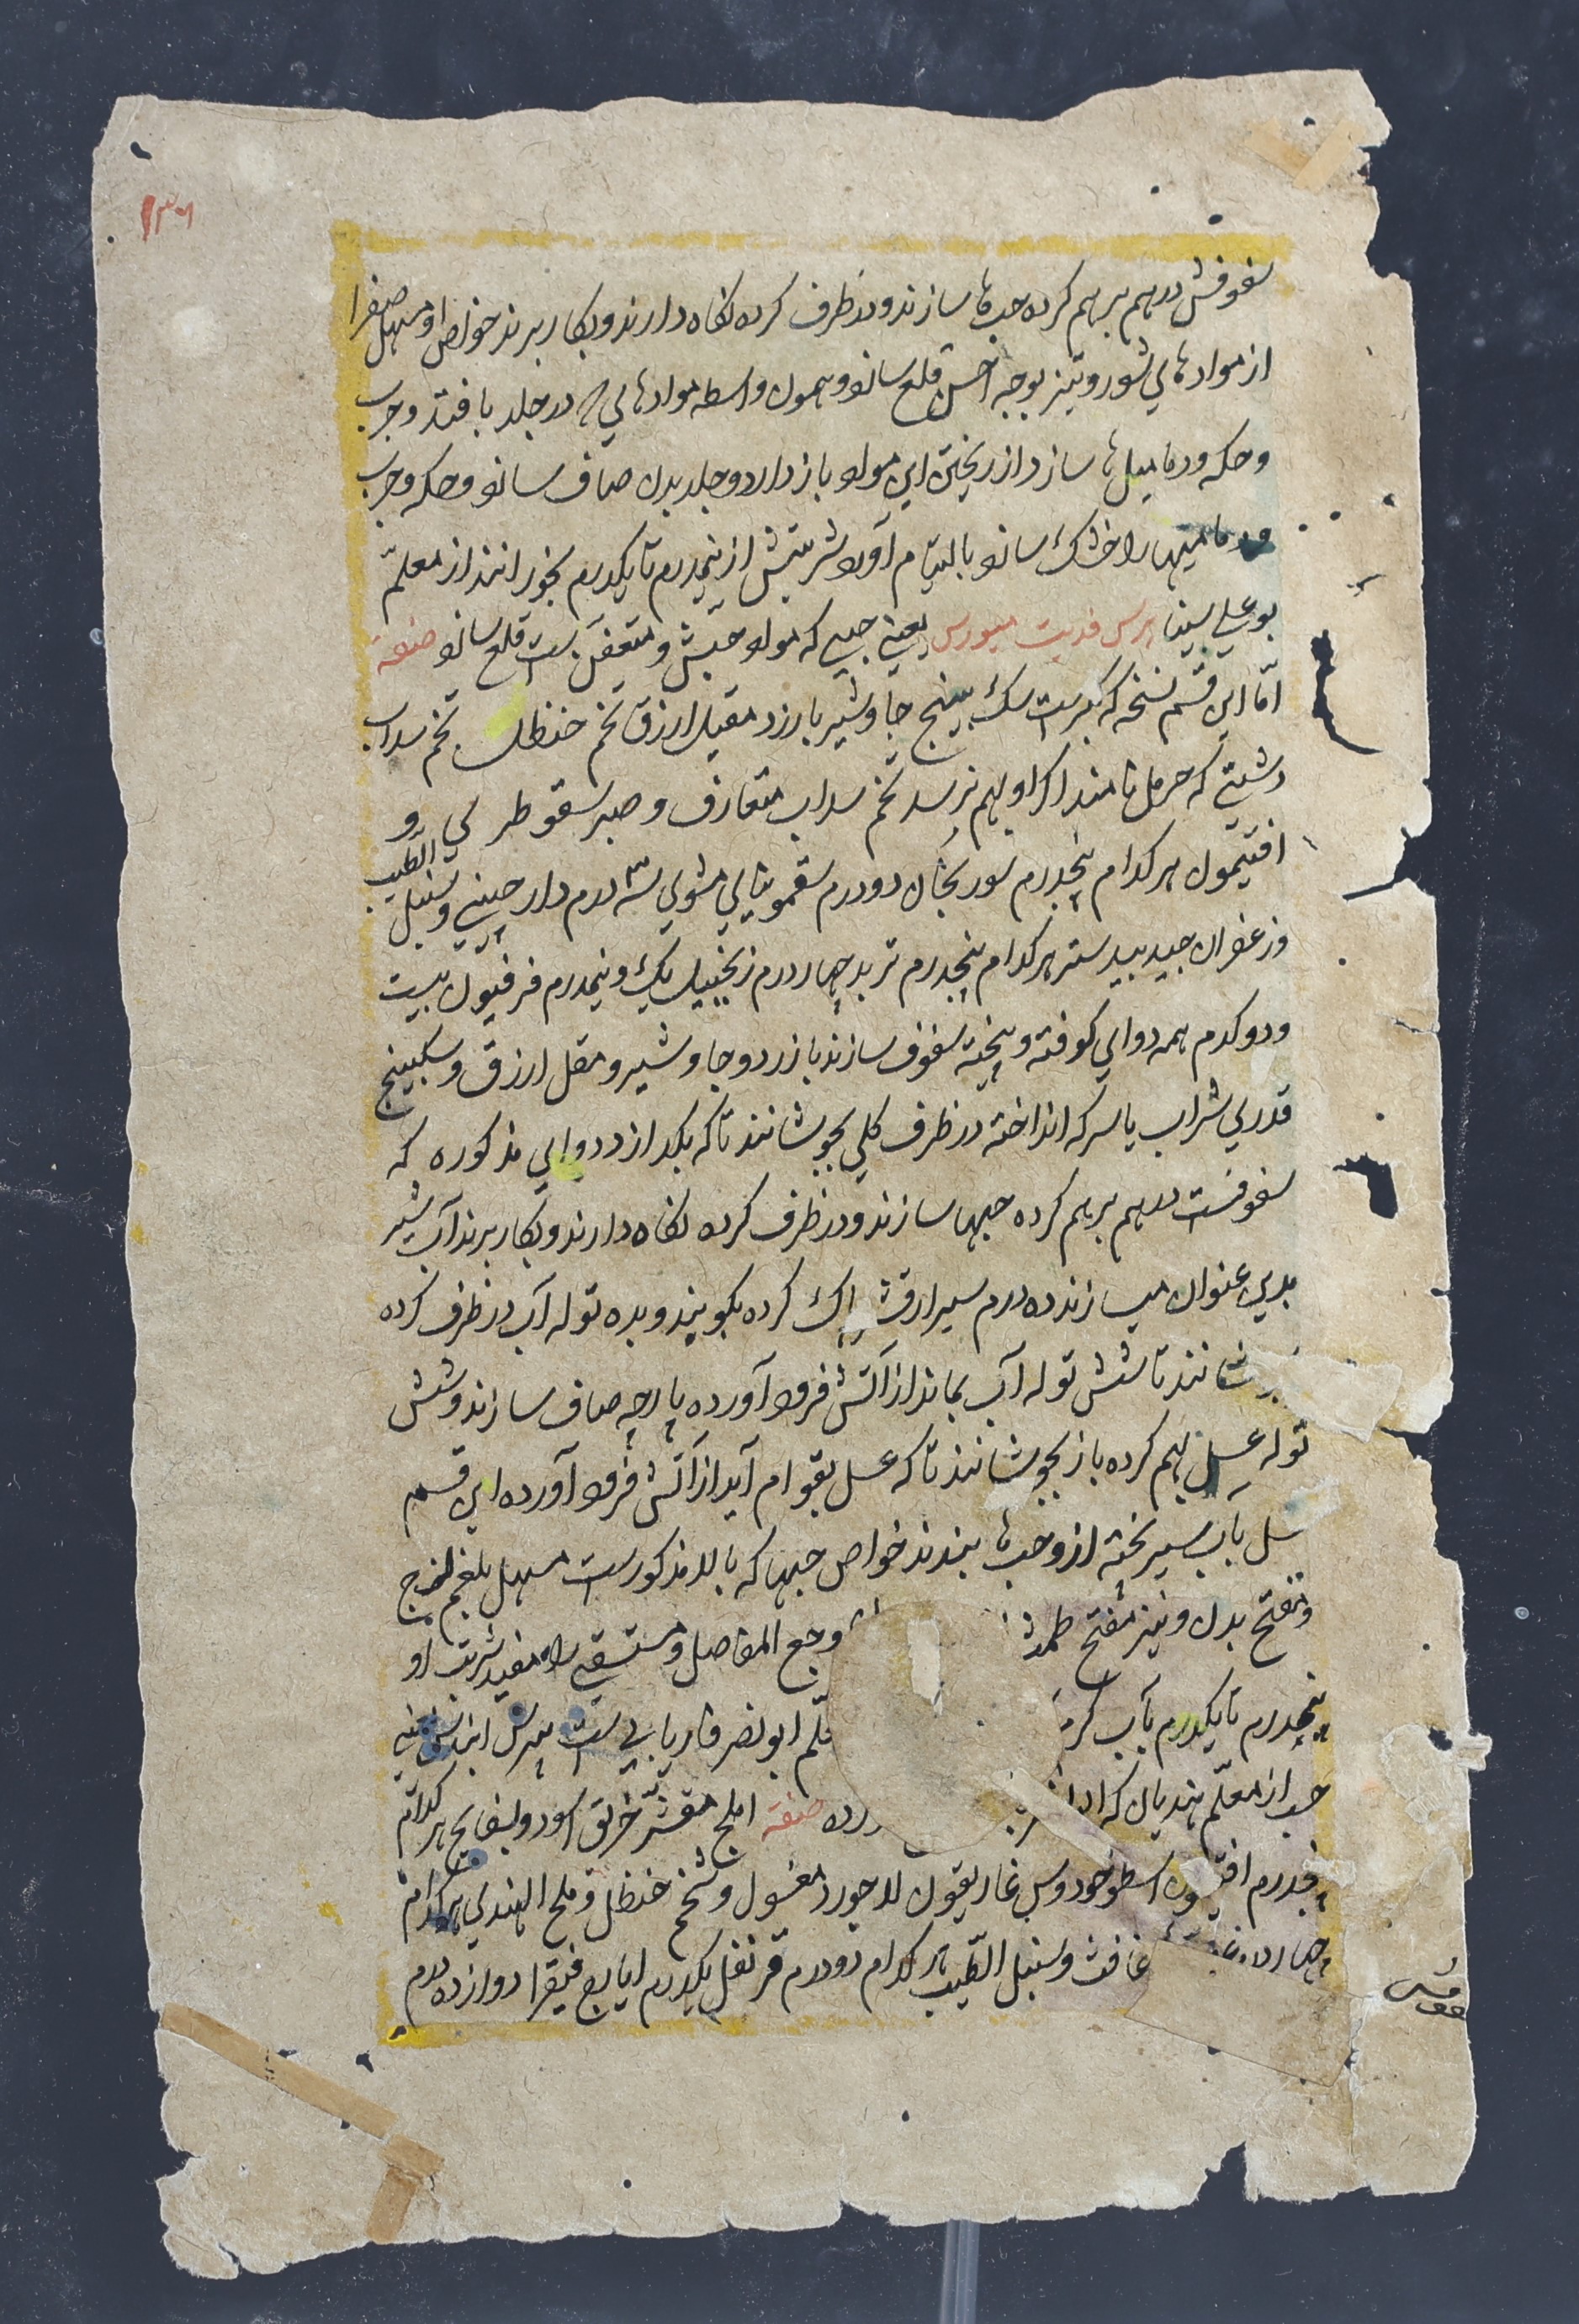 ۱۳۶
سفوفش درهم برهم کرده حب ها سازند و در ظرف کرده نگاه دارند و بکار برند خواص او مسهل صفرا
از مواد هاي شور و تیز بوجه احسن قلع سازد و همون واسطه مواد هاي که در جلد بافتد و جرب
و حکه و دمامیل ها سازد از ریختن این مواد باز دارد و جلد بدن صاف سازد و حکه و جرب
و دمامیلها را خشک سازد بالتیام آورد شربتش از نیمدرم تا یکدرم بخورانند از معلّم
بو علي سینا پرس فدیت میورس یعني حبي که مواد حبش و متعفّن ست قلع سازد صنعة
امّا این قسم نسخه که بکرست سک بینج جاوشیر بارزد مقیل ارزق تخم حنظل تخم سداب
دشتي که حرمل نامند اکر او بهم نرسد تخم سداب متعارف و صبر سقوطر ي و
افتیمون هر کدام پنجدرم سورنجان دو درم سقمونیاي مشوي سه درم دارچیني و سنبل الطیب
و زعفران جید بیدستر هر کدام پنجدرم تربد چهار درم زنجبیل یک و نیمدرم فرفیون بیست
و دو کدم همه دوایي کوفته و بیخته سفوف سازند بازرد و جاوشیر و مقل ارزق و سکبینج
قدري شراب یا سرکه انداخته در ظرف کلي بجوشانند تا که بکدازد دوایي مذکوره که
سفوفست درهم برهم کرده حبها سازند و در ظرف کرده نگاه دارند و بکار برند آب شیر
بدین عنوان میسازند ده درم سیر از قشر پاک کرده بکوبند و بده توله آب در ظرف کرده
بجوشانند تا شش توله آب بماند از آتش فرود آورده پارچه صاف سازند و شش
توله عسل بهم کرده باز بجوشانند تا که عسل بقوام آید از آتش فرود آورده این قسم
سل بآب سیر بخته ازو حب ها بندند خواص حبها که بالا مذکورست مسهل بلغم لزج
و مفتح بدن و نیز مفتح طمث وجع المفاصل و مستسقي را مفید شربت او
پنجدرم تا یکدرم بآب کر لّم ابو نصر فاریابي ست پرس
حب از معلّم هندیان که رده صنعة املج مقشّر خربق اسود و بسفایج هر کدام
پنجدرم افتیمون اسطوخودوس غاریقون لاجورد مغسول و شحم حنظل و ملح الهندي هر کدام
چهار درم غافث و سنبل الطّیب هر کدام دو درم قرنفل یکدرم ایارج فیقرا دوازده درم